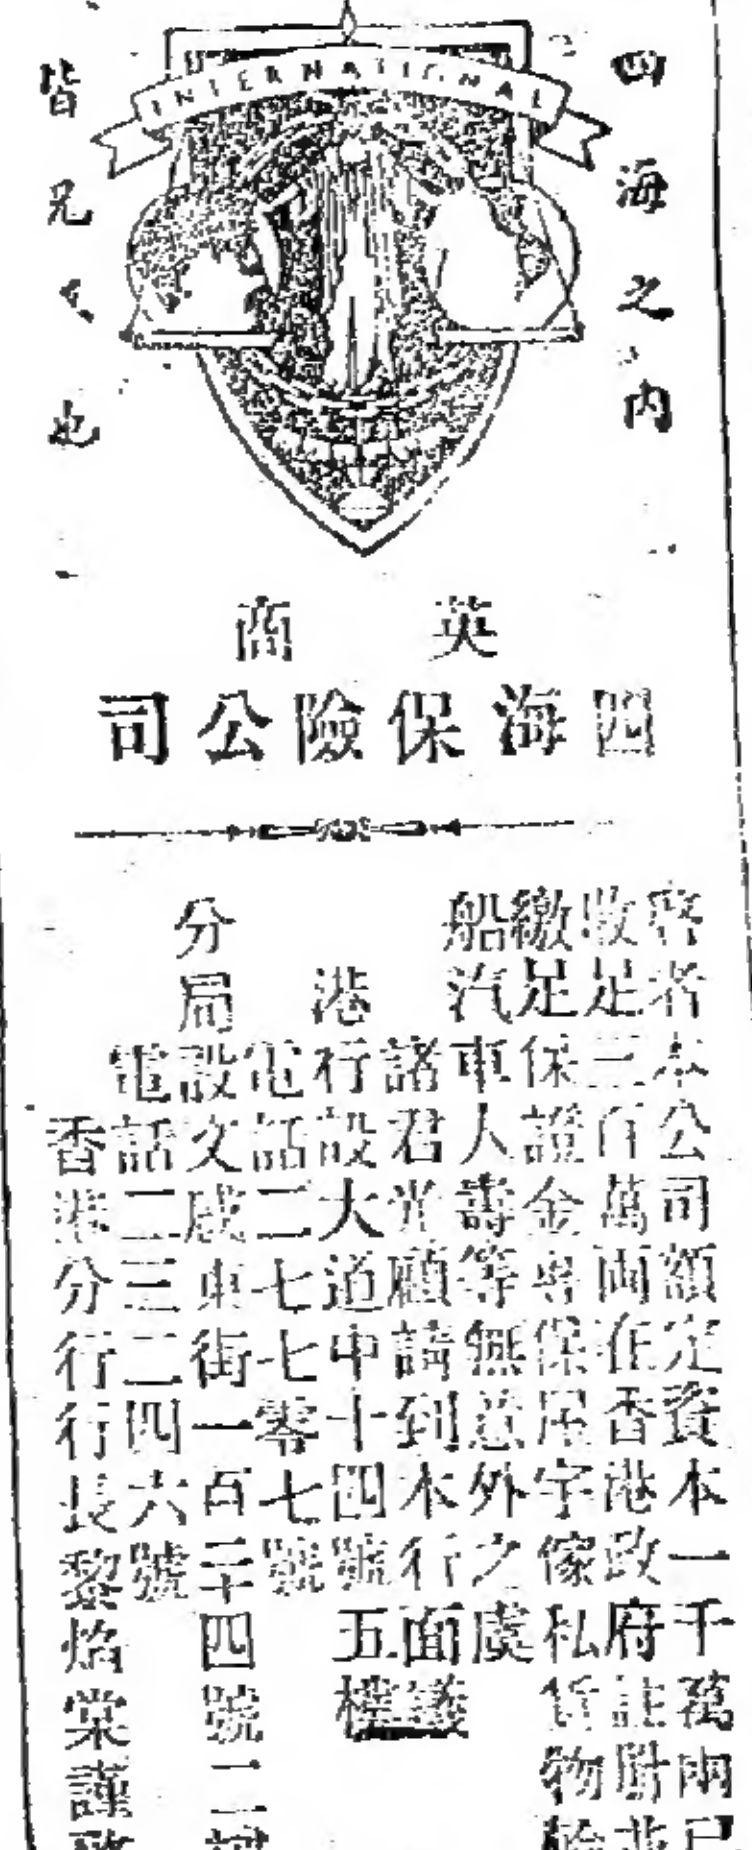 INTERNATIONAL
四海之内
皆兄也
英商
四海保險公司
啓者本公司額定資本一千萬兩已
收足三百萬兩在香港政府註冊並
繳足保證金專保屋宇傢私貨物輪
船汽車人壽等無意外之虞
諸君光顧請到本行面議
港行設大道中十四號五樓
電話二七七零七號
分局設文咸東街一百三十四號二
電話二三二四六號
香港分行行長黎焰棠謹啓